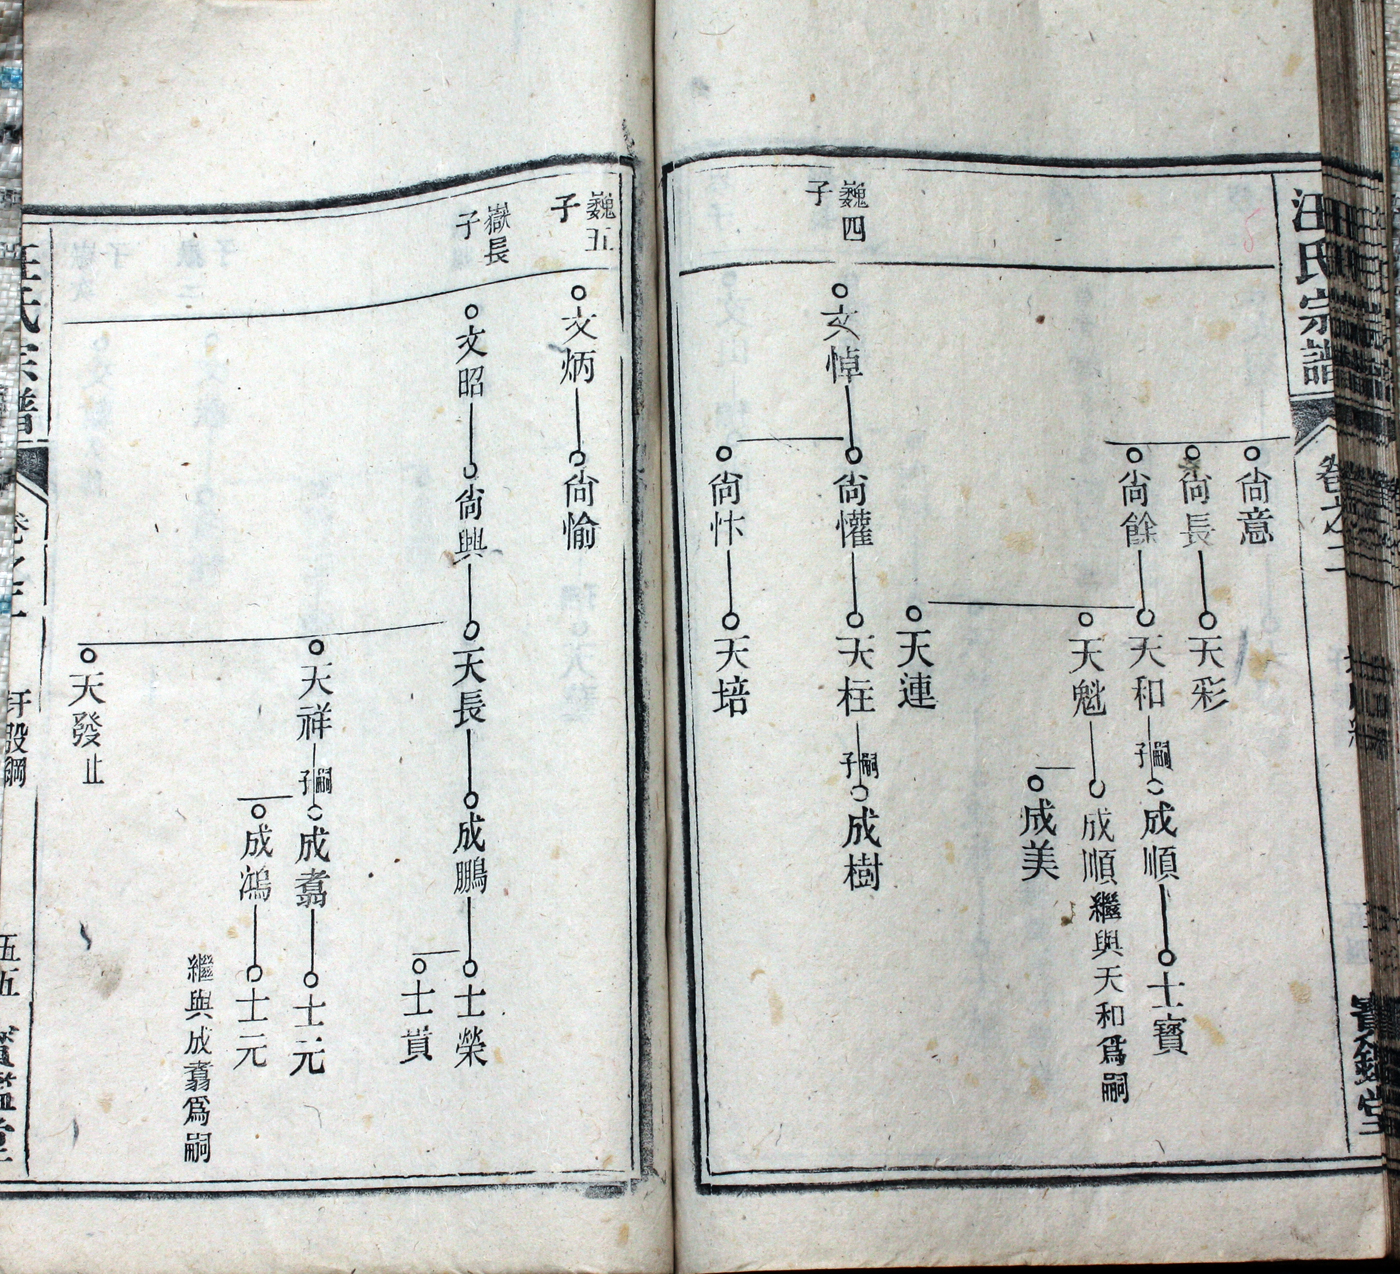 汪氏宗譜
卷之二
寶鑑堂
尙意
尙長
天彩
尙餘
天和
嗣子
成順
士寶
天魁
成順繼與天和爲嗣
成美
天連
巍四子
文悼
尙懽
天柱
嗣子
成樹
尙忭
天培
巍五子
文炳
尙愉
嶽長子
文昭
尙興
天長
成鵬
士榮
士貰
天祥
嗣子
成翥
士元
成鴻
士元
繼與成翥爲嗣
天發止
汪氏宗譜
卷之
伍五
寶鑑堂